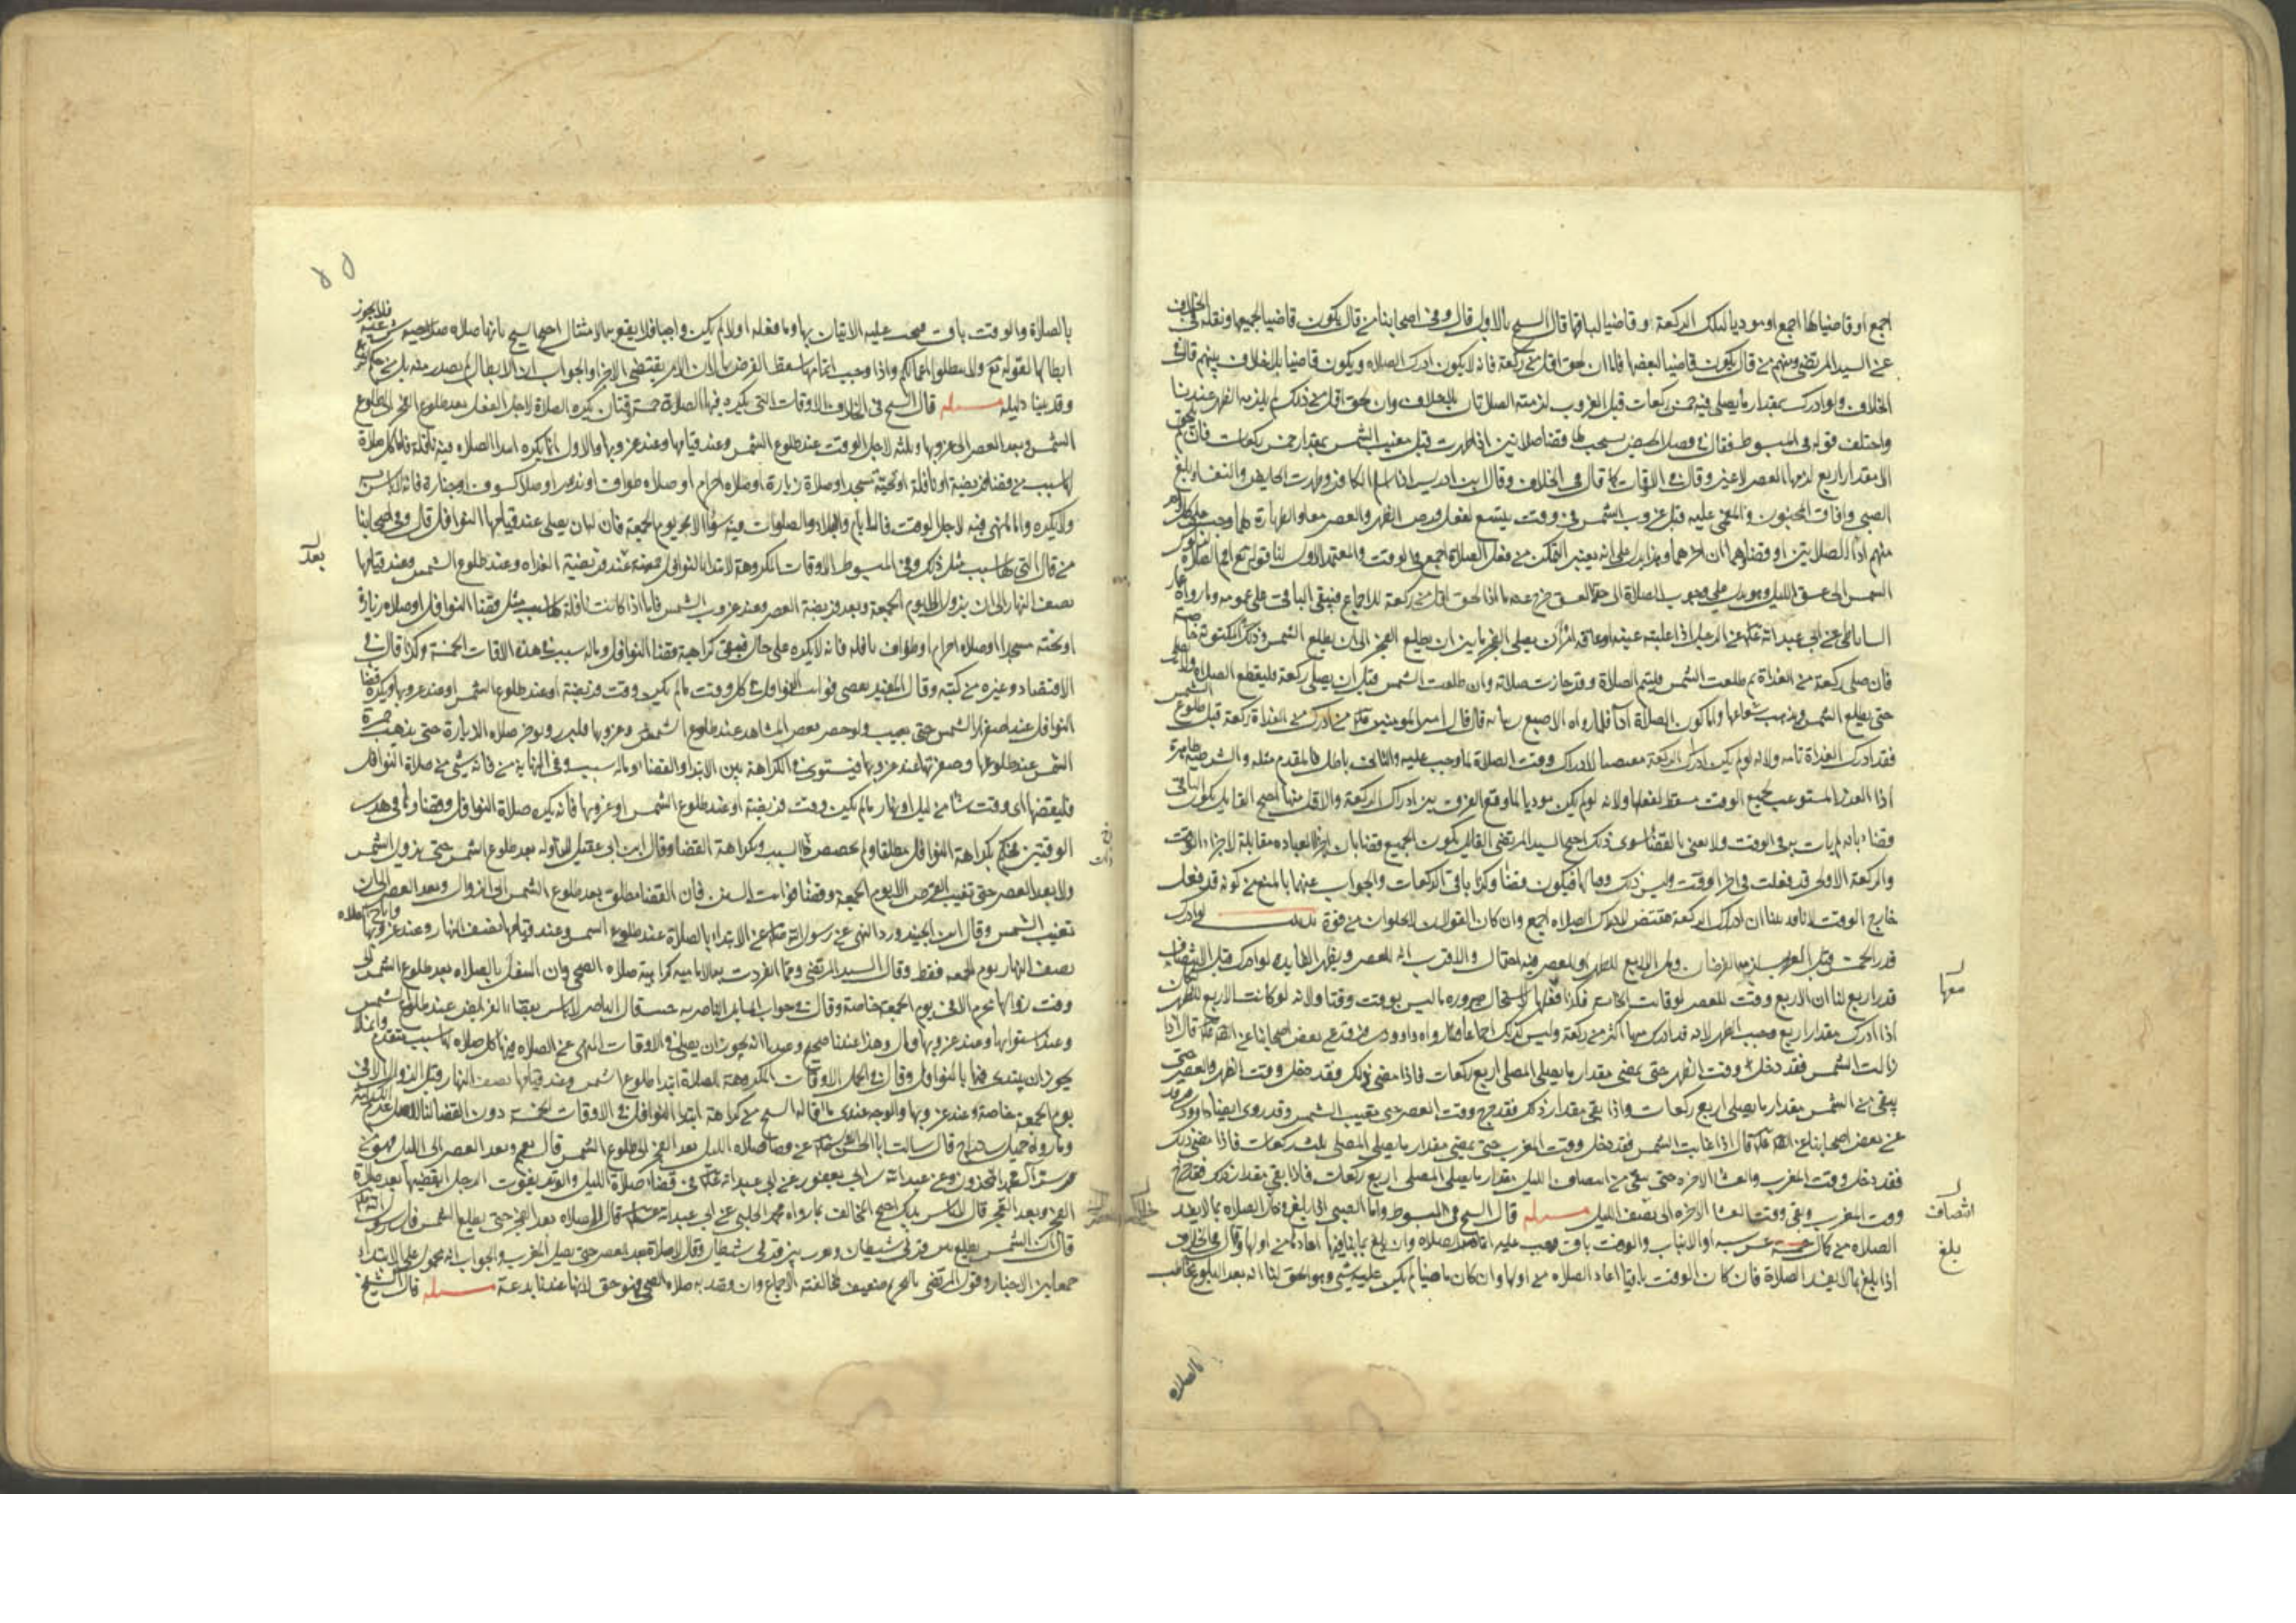 اجمع او قاضيا لها اجمع او موديا لتلك الركعة او قاضيا لباقيها قال الشيخ بالاول قال وفى اصحابنا من قال يكون قاضيا لجميعها ونقله فى الخلاف
عن السيد المرتضى ومنهم من قال يكون قاضيا لبعضها فاما ان لحق اقل من ركعة فانه لا يكون ادرك الصلاه ويكون قاضيا بلا خلاف بينهم قال فى
الخلاف ولو ادرك بمقدار ما يصلى فيه خمس ركعات قبل الغروب لزمته الصلاتان بلا خلاف وان لحق اقل من ذلك لم يلزمه الظهر عندنا
واختلف قوله فى المبسوط فقال فى فصل الحيض يستحب لها قضا صلاتين اذا طهرت قبل مغيب الشمس بمقدار خمس ركعات فان لم يلحق
الا بمقدار اربع لزمها العصر لا غير وقال فى الاوقات كما قال فى الخلاف وقال ابن ادريس اذا اسلم الكافر وطهرت الحايض والنفسا وبلغ
الصبى وافاق المجنون والمغمى عليه قبل غروب الشمس فى وقت يتسع لفعل فرض الظهر والعصر معا والطهارة لهما وجب على كل واحد
منهم ادا الصلاتين او قضاوهما ان اخرهما وهذا يدل على انه يعتبر التمكن من فعل الصلاة اجمع فى الوقت والمعتمد الاول لنا قوله تع اقم الصلاة لدلوك
الشمس الى غسق الليل وهو يدل على وجوب الصلاة الى
الساباطى عن ابى عبد الله عن الرجل اذا غلبته عينه او عاقه امر ان يصلى الفجر ما بين ان يطلع الفجر الى ان يطلع الشمس وذلك فى المكتوبة خاصة
فان صلى ركعة من الغداة ثم طلعت الشمس فليتم الصلاة وقد جازت صلاته وان طلعت الشمس قبل ان يصلى ركعة فليقطع الصلاة ولا يصل
حتى يطلع الشمس ويذهب شعاعها واما كون الصلاة ادا فلما رواه الاصبغ بن نباته قال قال امير المومنين من ادرك من الغداة ركعة قبل طلوع الشمس
فقد ادرك الغداة تامه ولانه لو لم يكن ادراك الركعة مقتضيا لادراك وقت الصلاة لما وجب عليه والتالى باطل فالمقدم مثله والشرطيه ظاهرة
اذا العذر المستوعب لجميع الوقت مسقط لفعلها ولانه لو لم يكن موديا لما وقع الفرق بين ادراك الركعة والاقل منها احتج القايل بكون الباقى
قضاء بانه لم يات به فى الوقت ولا يعنى بالقضا سوى ذلك احتج السيد المرتضى القايل بكون الجميع قضا بان اجزا العباده مقابلة لاجزا الوقت
والركعة الاولى قد فعلت فى اخر الوقت وليس ذلك وقتا لها فيكون قضا وكذا باقى الركعات والجواب عنهما بالمنع من كونه قد فعل
خارج الوقت لانا قد بينا ان ادراك الركعة مقتض لادراك الصلاه اجمع وان كان القولان لا يخلوان من قوة تذنيب لو ادرك
قدر الخمس قبل الغروب لزمه الفرضان وهل الاربع للظهر او للعصر فيه احتمال والاقرب انه للعصر ويظهر الفايده لو ادرك قبل الانتصاف
قدر اربع لنا ان الاربع وقت للعصر
اذا ادرك مقدار اربع وجب الظهر لانه قد ادرك منها اكثر من ركعة وليس كذلك اجماعا وما رواه داود بن فرقد عن بعض اصحابنا عن الصادق قال اذا
زالت الشمس فقد دخل وقت الظهر حتى يمضى مقدار ما يصلى المصلى اربع ركعات فاذا مضى ذلك فقد دخل وقت الظهر والعصر حتى
يبقى من الشمس مقدار ما يصلى اربع ركعات واذا بقى مقدار ذلك فقد خرج وقت العصر حتى يغيب الشمس وقد روى ايضا داود بن فرقد
عن بعض اصحابنا عن الصادق قال اذا غابت الشمس فقد دخل وقت المغرب حتى يمضى مقدار ما يصلى المصلى ثلث ركعات فاذا مضى ذلك
فقد دخل وقت المغرب والعشا الاخرة حتى يبقى من انتصاف الليل مقدار ما يصلى المصلى اربع ركعات فاذا بقى مقدار ذلك فقد خرج
وقت المغرب وبقى وقت العشا الاخرة الى نصف الليل مسئلة قال الشيخ فى المبسوط واما الصبى اذا بلغ فى خلال الصلاه بما لا يفسد
الصلاه من كمال خمسة عشر سنه او الانبات والوقت باق وجب عليه اتمام الصلاه وان بلغ بما ينافيها اعادها من اولها وقال فى الخلاف
اذا بلغ بما لا يفسد الصلاة فان كان الوقت باقيا اعاد الصلاه من اولها وان كان ماضيا لم يكن عليه شى وهو الحق لنا انه بعد البلوغ مخاطب
معها
انتصاف
بلغ
بالصلاة
بالصلاة والوقت باق فيجب عليه الاتيان بها وما فعله اولا لم يكن واجبا فلا يقع به الامتثال احتج الشيخ بانها صلاه صحيحه شرعيه فلا يجوز
ابطالها لقوله تع ولا تبطلوا اعمالكم واذا وجب اتمامها سقط الفرض بها لان الامر يقتضى الاجزا والجواب ان الابطال لم يصدر منه بل من حكم الشرع
وقد بينا دليله مسئلة قال الشيخ فى الخلاف الاوقات التى يكره فيها الصلاة خمسة وقتان يكره الصلاة لاجل الفعل بعد طلوع الفجر الى طلوع
الشمس وبعد العصر الى غروبها وثلثه لاجل الوقت عند طلوع الشمس وعند قيامها وعند غروبها والاول انما يكره ابتدا الصلاه فيه نافلة فاما كل صلاة
لها سبب من قضا فريضة او نافلة او تحية مسجد او صلاة زيارة او صلاه احرام او صلاه طواف او نذر او صلاة كسوف او جنازة فانه لا باس به
ولا يكره واما المنهى فيه لاجل الوقت فالايام والبلاد والصلوات فيه سوا الا يوم الجمعة فان له ان يصلى عند قيامها النوافل قال وفى اصحابنا
من قال التى لها سبب مثل ذلك وفى المبسوط الاوقات المكروهة لابتدا النوافل خمسة عند فريضة الغداه وعند طلوع الشمس وعند قيامها
نصف النهار الى ان يزول الا يوم الجمعة وبعد فريضة العصر وعند غروب الشمس فاما اذا كانت نافلة لها سبب مثل قضا النوافل او صلاه زيارة
او تحية مسجد او صلاه احرام او طواف نافله فانه لا يكره على حال
الاقتصاد وغيره من كتبه وقال المفيد يقضى فوايت النوافل فى كل وقت ما لم يكن وقت فريضة او عند طلوع الشمس او عند غروبها ويكره قضا
النوافل عند اصفرار الشمس حتى يغيب ولو حضر بعض المشاهد عند طلوع الشمس وغروبها فليزر ويوخر صلاه الزيارة حتى يذهب حمرة
الشمس عند طلوعها وصفرتها عند غروبها فيستوى فى الكراهة بين الابتدا والقضا وماله سبب وفى النهاية من فاته شى من صلاة النوافل
فليقضها اى وقت شا من ليل او نهار ما لم يكن وقت فريضة او عند طلوع الشمس او غروبها فانه يكره صلاة النوافل وقضاوها فى هذين
الوقتين فحكم بكراهة النوافل مطلقا ولم يخصص ذا السبب وبكراهة القضا وقال ابن ابى عقيل لا نافلة بعد طلوع الشمس حتى يزول الشمس
ولا بعد العصر حتى تغيب القرص الا يوم الجمعة وقضا فوايت السنن فان القضا مطلق بعد طلوع الشمس الى الزوال وبعد العصر الى ان
تغيب الشمس وقال ابن الجنيد ورد النهى عن رسول الله عن الابتداء بالصلاة عند طلوع الشمس وعند قيامها نصف النهار وعند غروبها واباح الصلاه
نصف النهار يوم الجمعه فقط وقال السيد المرتضى ومما انفردت به الاماميه كراهية صلاه الضحى وان التنفل بالصلاه بعد طلوع الشمس الى
وقت زوالها محرم الا فى يوم الجمعة خاصة وقال فى جواب المسايل الناصريه حيث قال الناصر لا باس بقضا الفرايض عند طلوع الشمس
وعند استوائها وعند غروبها قال وهذا عندنا صحيح وعندنا انه يجوز ان يصلى فى الاوقات المنهى عن الصلاه فيها كل صلاه لها سبب متقدم وانما لا
يجوز ان يبتدى فيها بالنوافل وقال فى الجمل الاوقات المكروهة للصلاة ابتدا طلوع الشمس وعند قيامها نصف النهار قبل الزوال الا فى
يوم الجمعة خاصة وعند غروبها والوجه عندى ما قاله الشيخ من كراهة ابتدا النوافل فى الاوقات الخمسة دون القضا لنا الاصل عدم الكراهة
وما رواه جميل بن دراج قال سالت ابا الحسن عن قضا صلاه الليل بعد الفجر الى طلوع الشمس قال نعم وبعد العصر الى الليل فهو من
سر آل محمد المخزون وعن عبد الله بن ابى يعفور عن ابى عبد الله فى قضاء صلاة الليل والوتر يفوت الرجل ايقضيها بعد صلاة
الفجر وبعد العصر قال لا باس بذلك احتج المخالف بما رواه محمد الحلبى عن ابى عبد الله قال لا صلاه بعد الفجر حتى يطلع الشمس فان رسول الله
قال ان الشمس يطلع بين قرنى شيطان وتغرب بين قرنى شيطان وقال لا صلاة بعد العصر حتى يصلى المغرب والجواب انه محمول على الابتداء
جمعا بين الاخبار وقول المرتضى بالتحريم ضعيف لمخالفته الاجماع وان قصد به صلاه الضحى فهو حق لانها عندنا بدعة مسئلة قال الشيخ
بعد